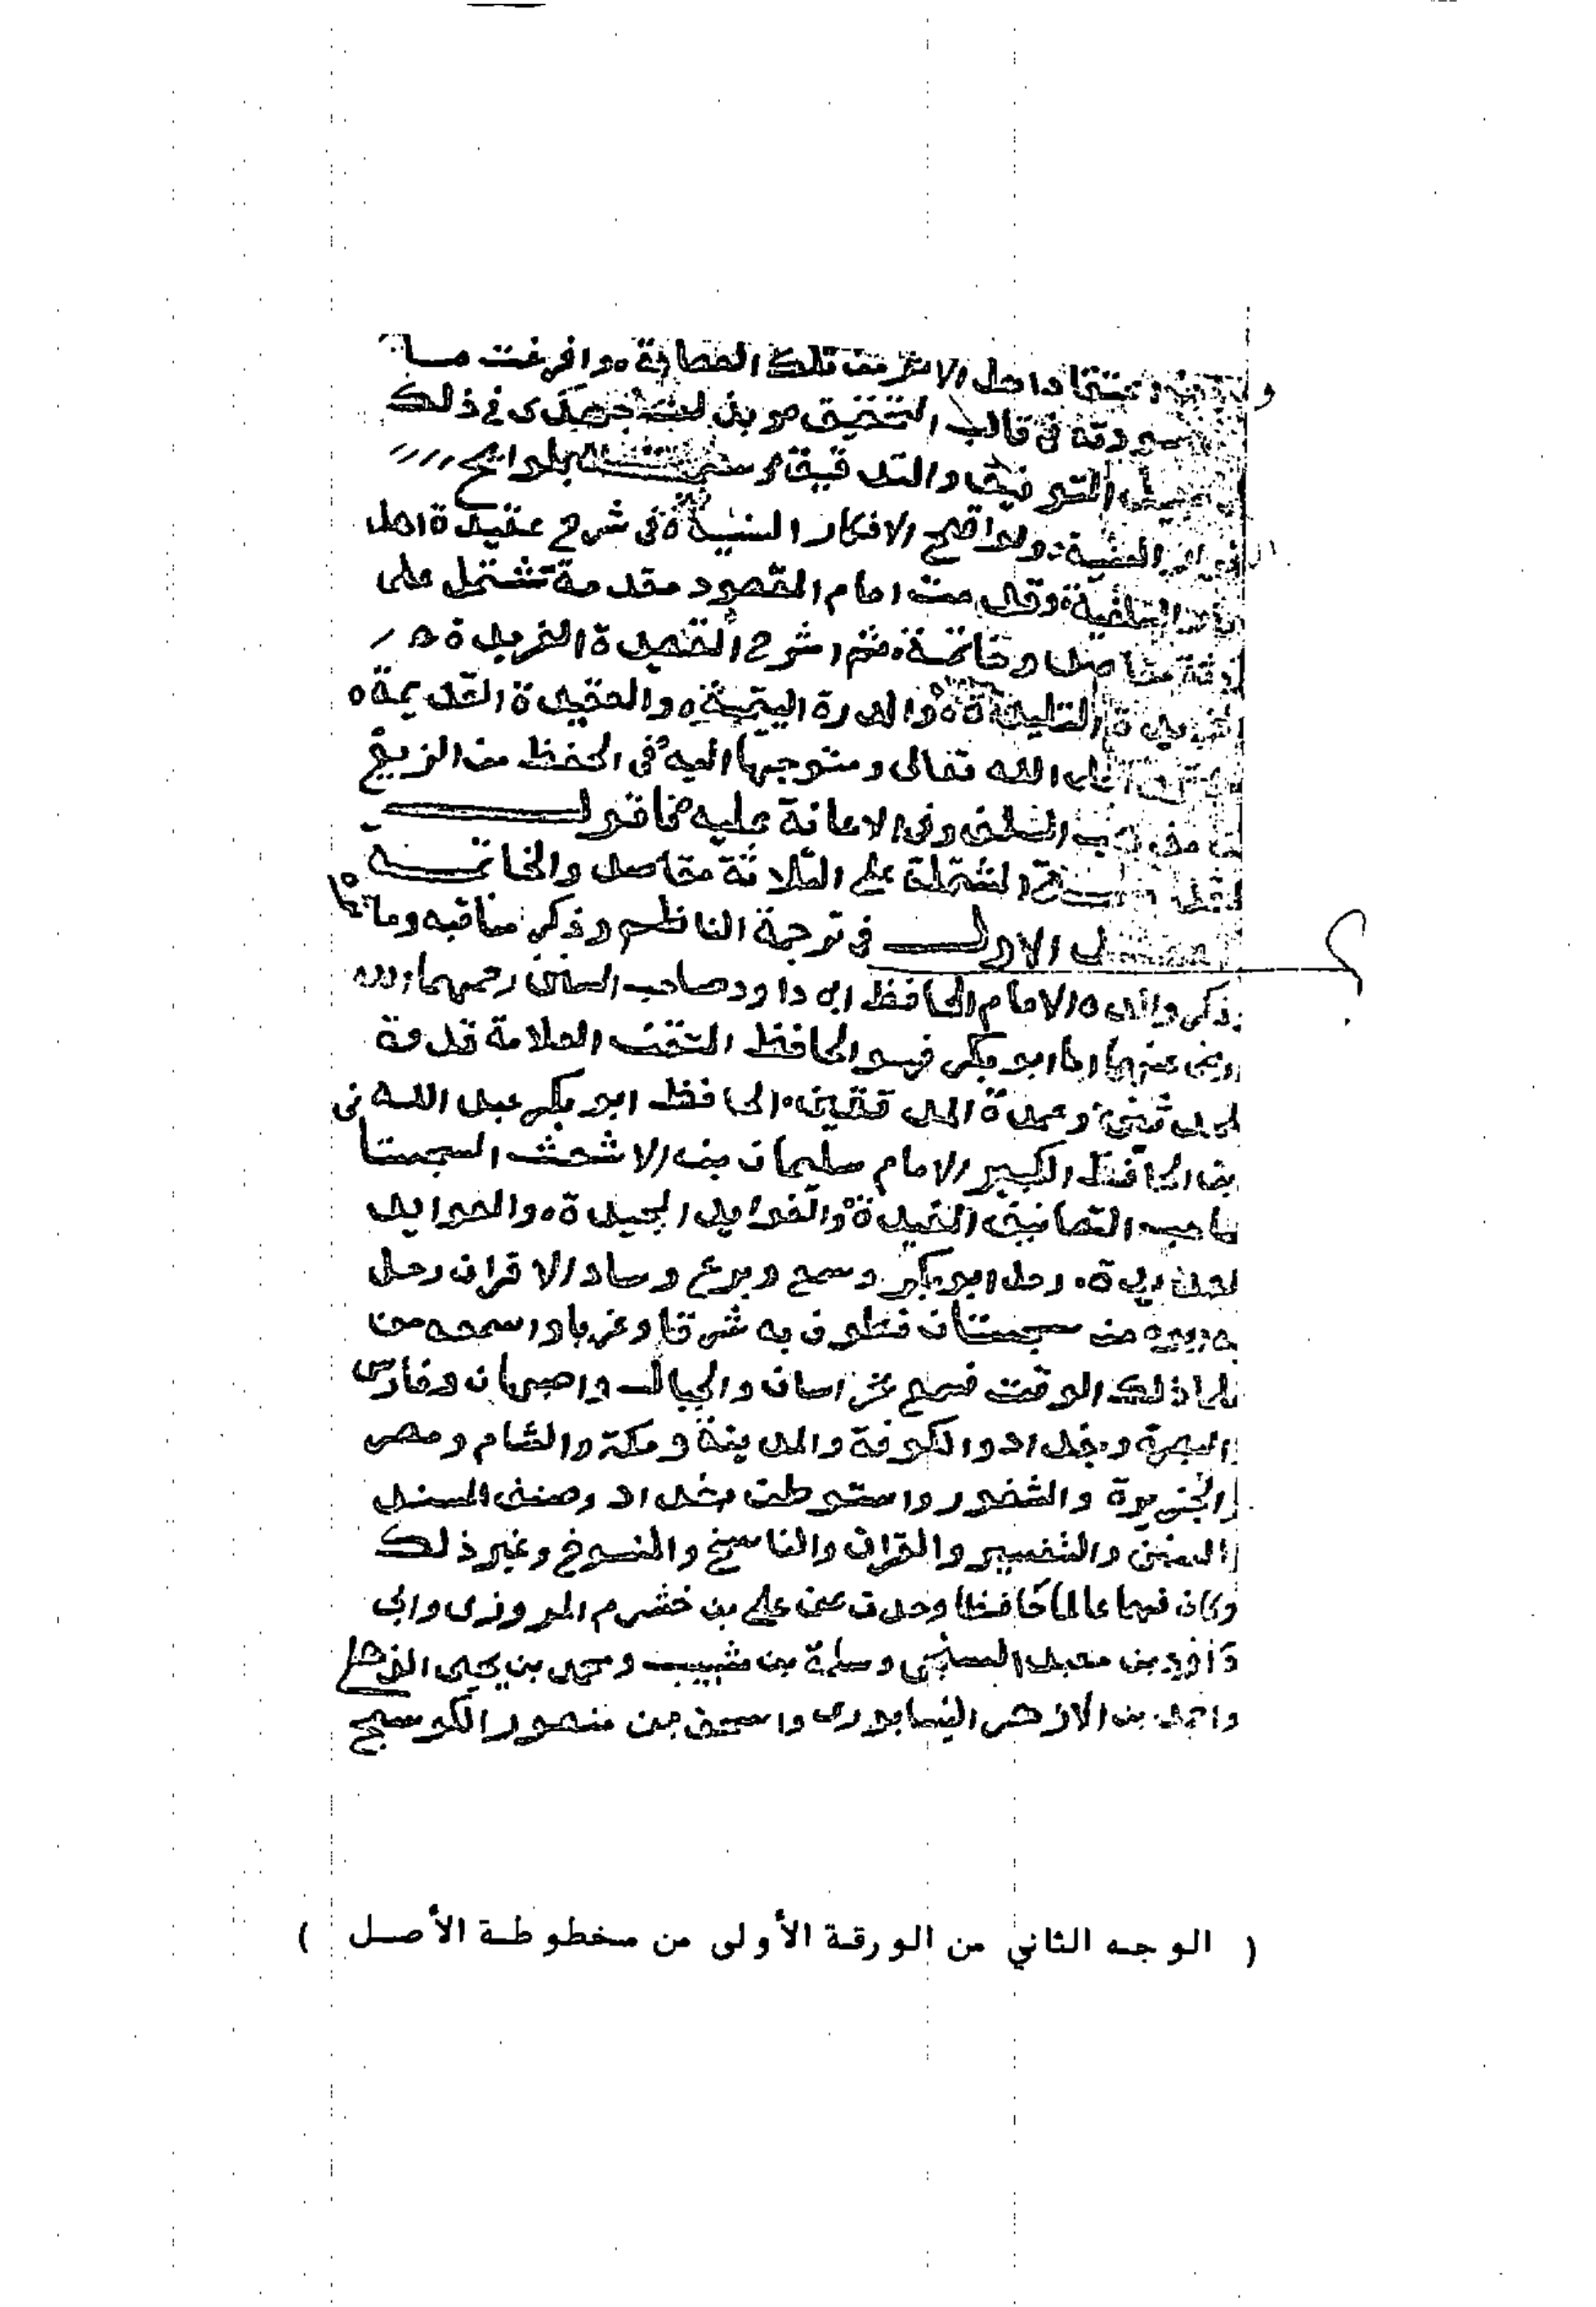 اهل الاثر من تلك العصابة، وافرغت ما
سودته في قالب التحقيق مو بذلت جهدي في ذلك
التوفيق والتدقيق بلوايح
السنية، ولواقح الافكار السنية في شرح عقيدة اهل
السلفية، وقدمت امام المقصود مقدمة تشتمل على
مقاصد وخاتمة، ثم اشرح القصيدة الفريدة ه
التليدة ه والدرة اليتيمة، والعقيدة القديمة ه
الله تعالى ومتوجها اليه في الحفظ من الزيغ
السلف وفي الاعانة عليه فاقول
المشتملة على الثلاثة مقاصد والخاتمة
الاول في ترجمة الناظم وذكر مناقبه وماثره
ذكر والده الامام الحافظ ابي داود صاحب السنن رحمهما الله
ورضي عنهما اما ابو بكر فهو الحافظ المتقن العلامة قدوة
لمحدثين، وعمدة المدققين، الحافظ ابو بكر عبد الله ني
بن الحافظ الكبير الامام سليمان بن الاشعث السجستا
صاحب التصانيف المفيدة، والفوايد الجيدة، والعوايد
العديدة. رحل ابو بكر وسمع وبرع وساد الاقران رحل
به ابوه من سجستان فطوف به شرقا وغربا واسمعه من
علما ذلك الوقت فسمع بخراسان والجبال واصبهان وفارس
البصرة وبغداد والكوفة والمدينة ومكة والشام ومصر
الجزيرة والثغور واستوطن بغداد وصنف المسند
السنن والتفسير والقران والناسخ والمنسوخ وغير ذلك
وكان فهما عالما حافظا وحدث عن علي بن خشرم المروزي وابي
داود بن معبد السنجي وسلمة بن شبيب ومحمد بن يحيى الذهلي
واحمد بن الازهر النيسابوري واسحق بن منصور الكوسج
( الوجه الثاني من الورقة الأولى من مخطوطة الأصل )